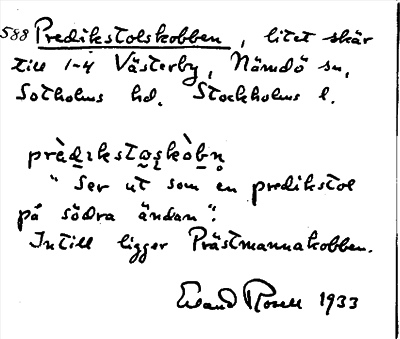 588 Predikstolskobben, litet skär
till 1-4 Västerby, Nämdö sn,
Sotholms hd. Stockholms l.
prèdıkstω̨skòbn̥
"Ser ut som en predikstol
på södra ändan".
Intill ligger Prästmannakobben.
Erland Rosell 1933